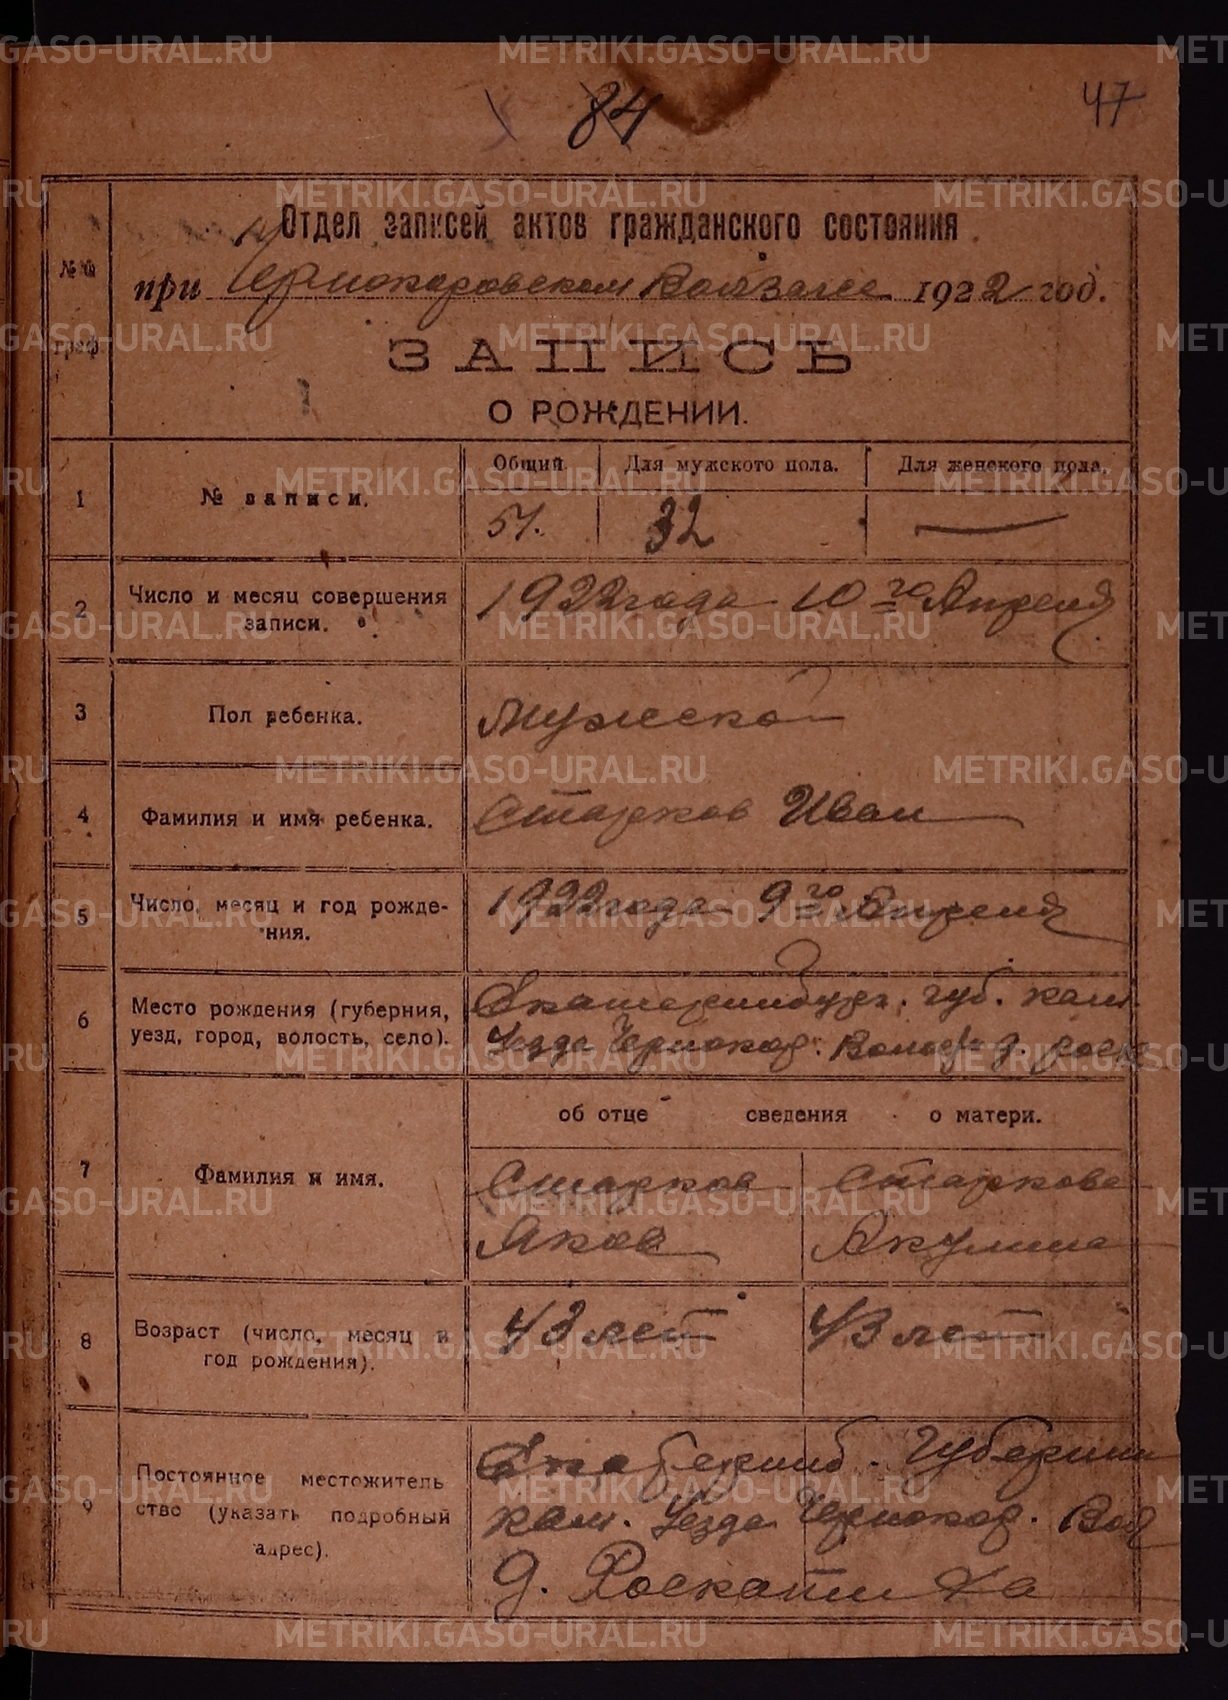 METRIKI.GASO-URAL.RU
84
47
Отдел записей актов гражданского состояния
при Чернокоровском Волзагсе 1922 год.
№№ граф.
ЗАПИСЬ
О РОЖДЕНИИ.
1 № записи. Общий Для мужского пола. Для женского пола.
57. 32 —
2 Число и месяц совершения записи. 1922 года 10го Апреля
3 Пол ребенка. Мужской
4 Фамилия и имя ребенка. Старков Иван
5 Число, месяц и год рождения. 1922 года 9го Апреля
6 Место рождения (губерния, Екатеринбург. губ. кам.
уезд, город, волость, село). Уезда Чернокор. Волос д. роск
об отце сведения о матери.
7 Фамилия и имя. Старков Старкова
Яков Акулина
8 Возраст (число, месяц и год рождения). 43 лет 43 лет
9 Постоянное местожитель Екатеринб. Губернии
ство (указать подробный Кам. Уезда Чернокор. Вол
адрес). д. Роскатиха